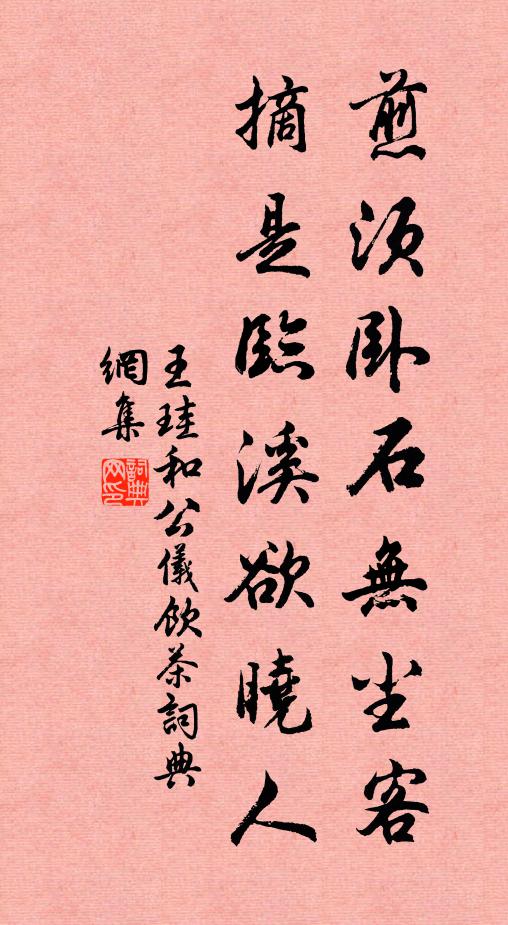 煎須卧石無尘客
摘是臨溪欲曉人
王珪和公儀飲茶詞典
網集
詞典网印